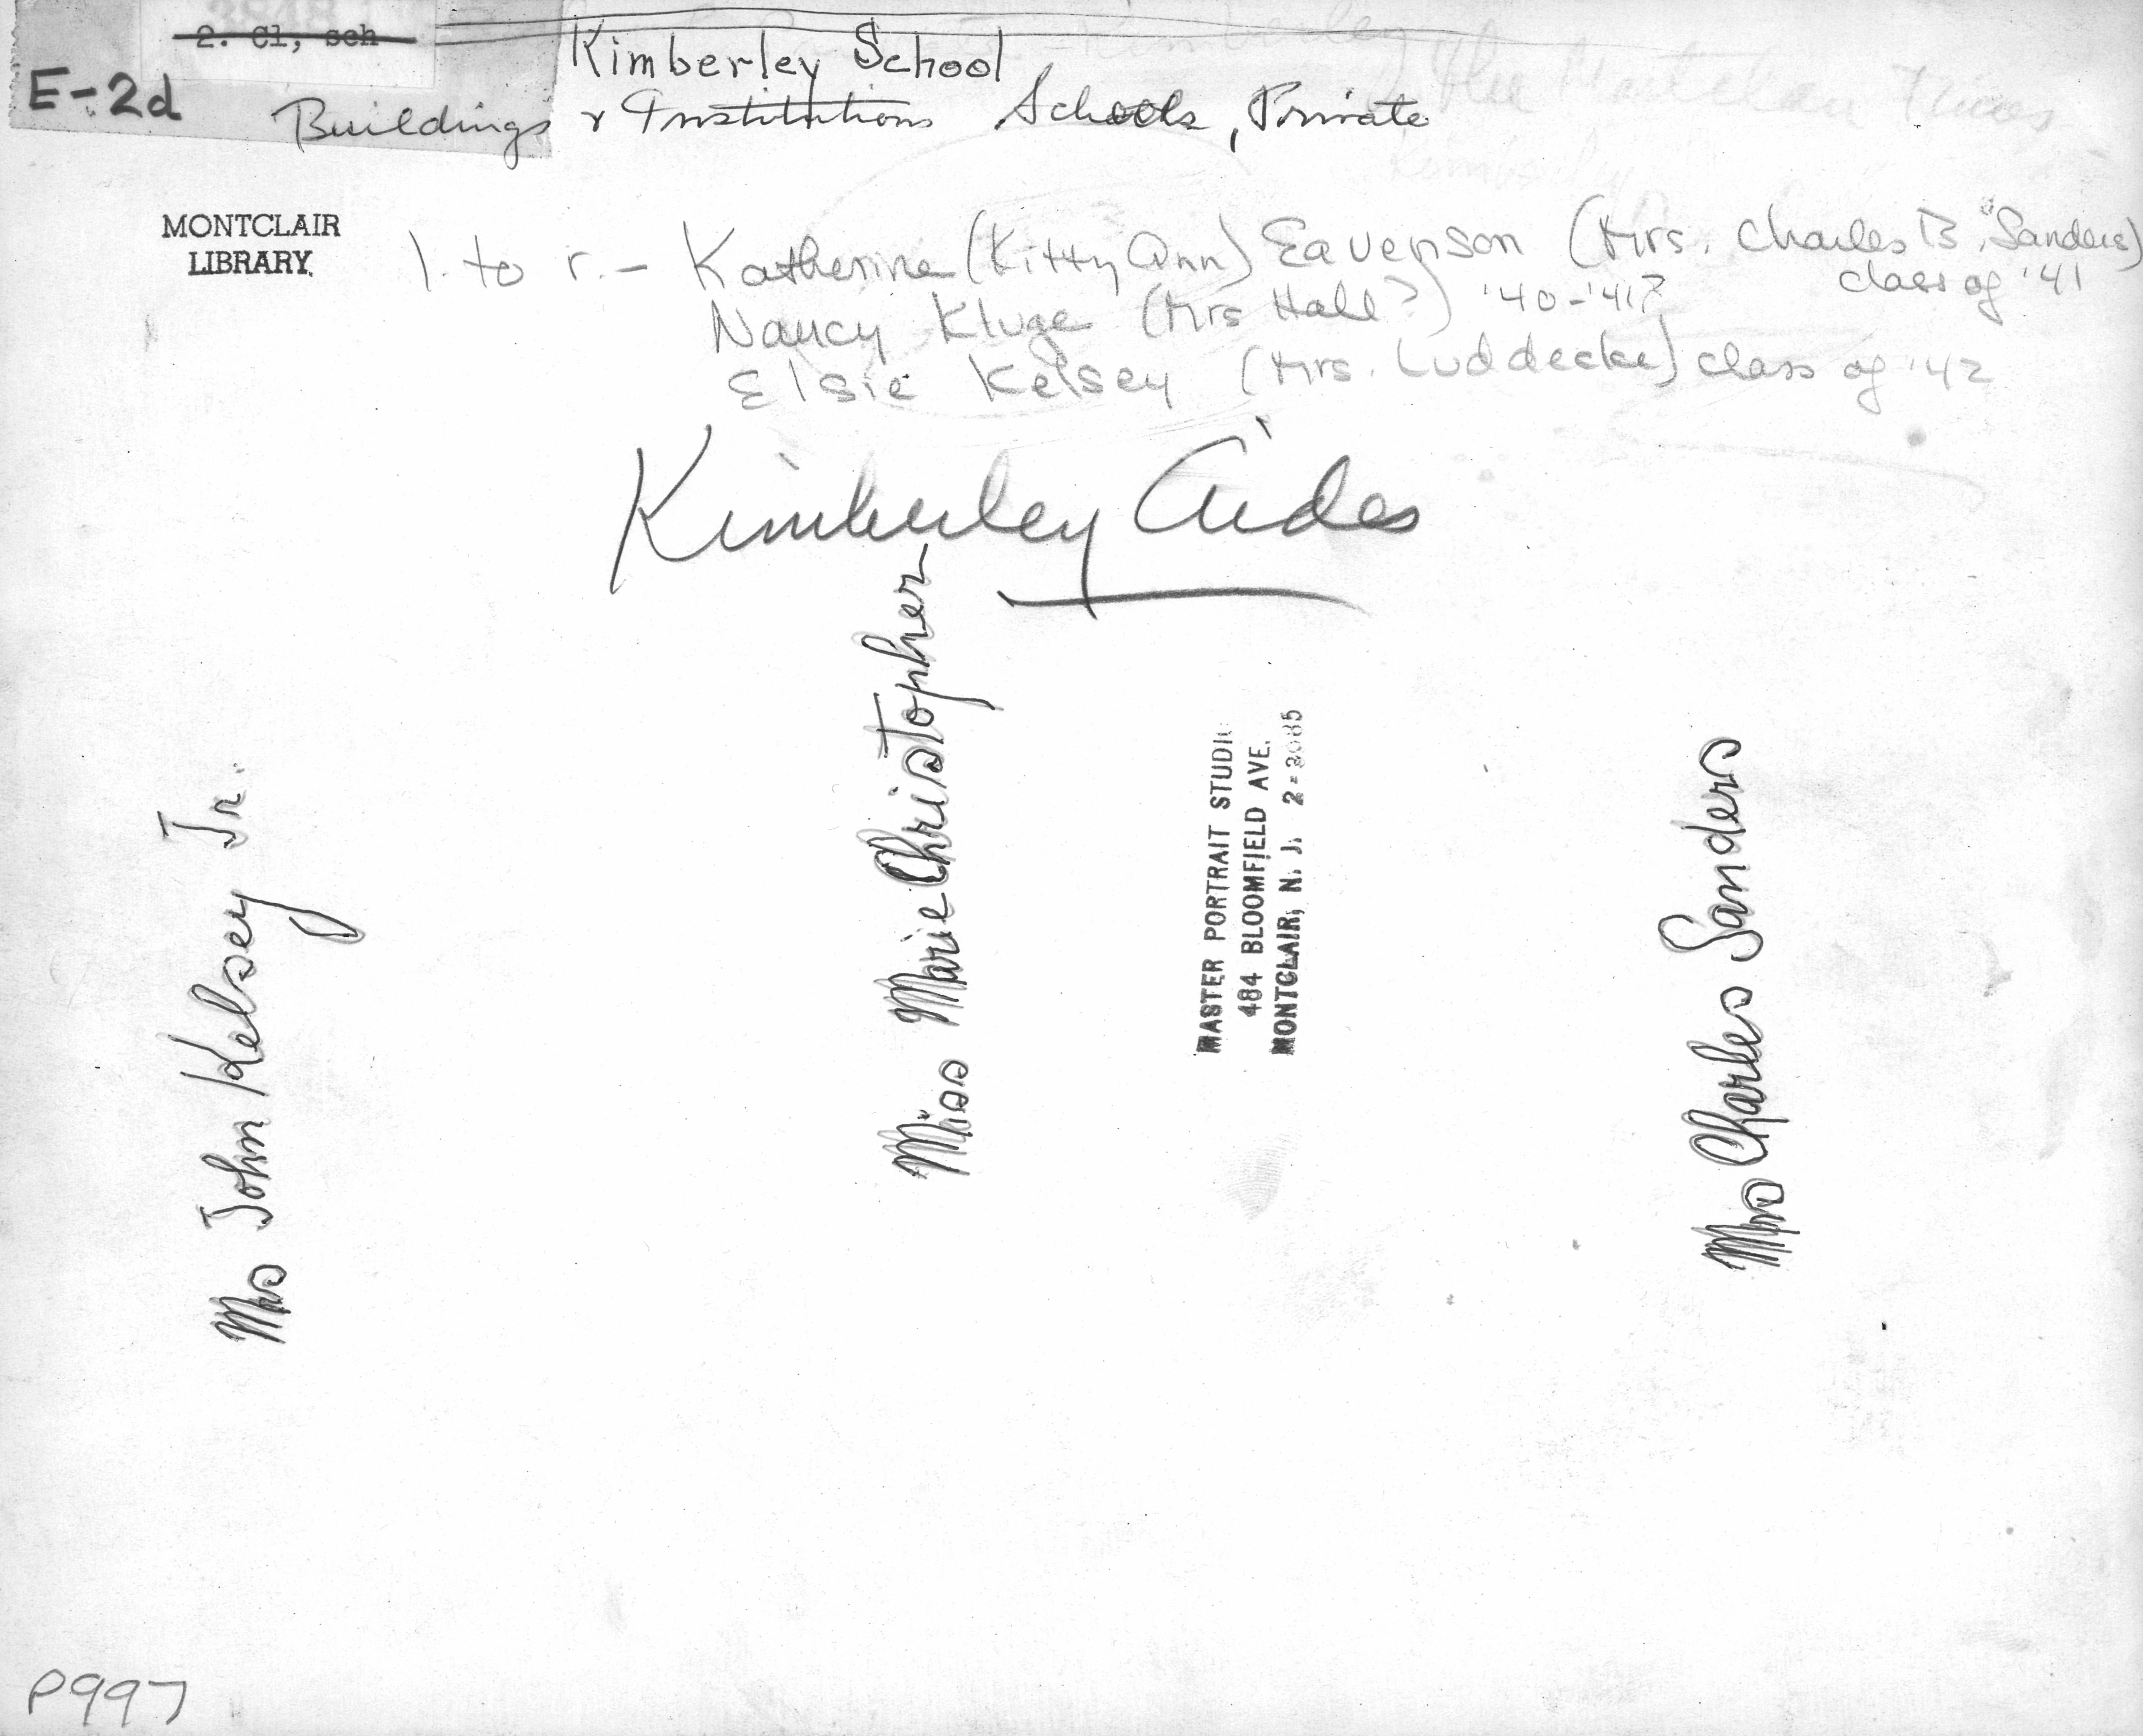 2. Cl, sch
E-2d
Kimberley School
Buildings & Institutions Schools, Private
MONTCLAIR
LIBRARY
l. to r. - Katherine (Kitty Ann) Eavenson (Mrs. Charles B. Sanders)
class of '41
Nancy Kluge (Mrs Hall?) '40-'41?
Elsie Kelsey (Mrs. Luddecke) class of '42
Kimberley Aides
Mrs John Kelsey Jr.
Miss Marie Christopher
MASTER PORTRAIT STUDI
484 BLOOMFIELD AVE.
MONTCLAIR, N. J. 2-
Mrs Charles Sanders
P997